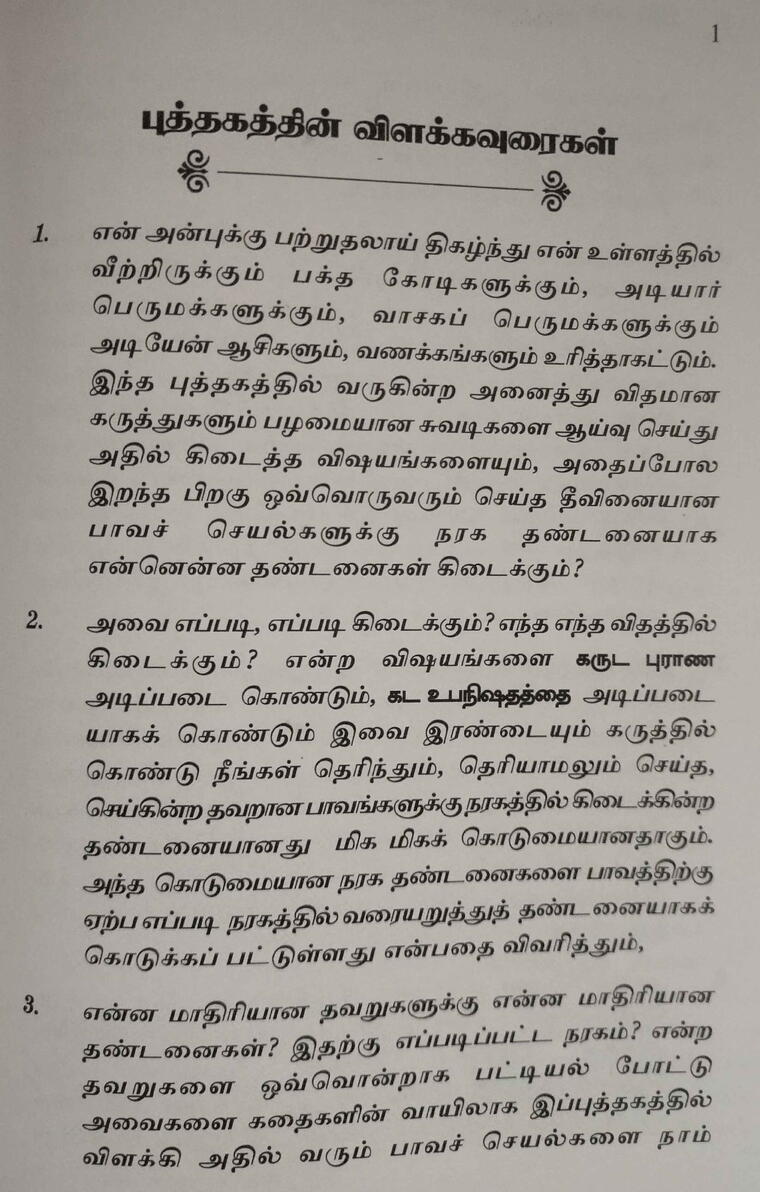 1
புத்தகத்தின் விளக்கவுரைகள்
1. என் அன்புக்கு பற்றுதலாய் திகழ்ந்து என் உள்ளத்தில்
வீற்றிருக்கும் பக்த கோடிகளுக்கும், அடியார்
பெருமக்களுக்கும், வாசகப் பெருமக்களுக்கும்
அடியேன் ஆசிகளும், வணக்கங்களும் உரித்தாகட்டும்.
இந்த புத்தகத்தில் வருகின்ற அனைத்து விதமான
கருத்துகளும் பழமையான சுவடிகளை ஆய்வு செய்து
அதில் கிடைத்த விஷயங்களையும், அதைப்போல
இறந்த பிறகு ஒவ்வொருவரும் செய்த தீவினையான
பாவச் செயல்களுக்கு நரக தண்டனையாக
என்னென்ன தண்டனைகள் கிடைக்கும்?
2. அவை எப்படி, எப்படி கிடைக்கும்? எந்த எந்த விதத்தில்
கிடைக்கும்? என்ற விஷயங்களை கருட புராண
அடிப்படை கொண்டும், கட உபநிஷதத்தை அடிப்படை
யாகக் கொண்டும் இவை இரண்டையும் கருத்தில்
கொண்டு நீங்கள் தெரிந்தும், தெரியாமலும் செய்த,
செய்கின்ற தவறான பாவங்களுக்கு நரகத்தில் கிடைக்கின்ற
தண்டனையானது மிக மிகக் கொடுமையானதாகும்.
அந்த கொடுமையான நரக தண்டனைகளை பாவத்திற்கு
ஏற்ப எப்படி நரகத்தில் வரையறுத்துத் தண்டனையாகக்
கொடுக்கப் பட்டுள்ளது என்பதை விவரித்தும்,
3. என்ன மாதிரியான தவறுகளுக்கு என்ன மாதிரியான
தண்டனைகள்? இதற்கு எப்படிப்பட்ட நரகம்? என்ற
தவறுகளை ஒவ்வொன்றாக பட்டியல் போட்டு
அவைகளை கதைகளின் வாயிலாக இப்புத்தகத்தில்
விளக்கி அதில் வரும் பாவச் செயல்களை நாம்